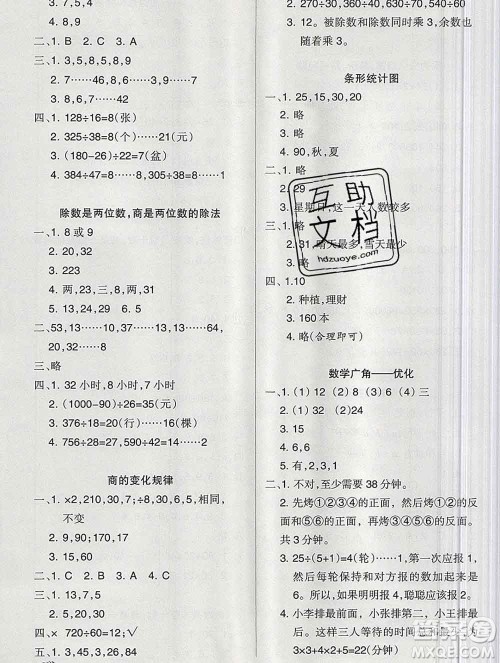 3. 7,5,4
二、1. B　2. C
三、1. 3,5,8,5,8,9
2. 7……46,8……3,9……7
3. 8,6,7……42
四、1. 128÷16=8(张)
2. 325÷38=8(个)……21(元)
3. (180-26)÷22=7(盆)
4. 384÷47=8……8,510÷56=9……6
除数是两位数,商是两位数的除法
一、1. 8 或 9
2. 20,32
3. 223
4. 两,23,三,8,两,31
5. 13,24,29　6. 8
二、53,15……10,13……13,64……19,
20,32……10
三、略
四、1. 32 小时,8 小时,7 小时
2. (1000-90)÷26=35(元)
3. 376÷18=20(行)……16(棵)
4. 756÷28=27,590÷42=14……2
商的变化规律
一、1. ×2,210,30,7;÷8,30,6,5;相同,
不变
2. 9,90;170,17
3. 15,60
二、1. C　2. C　3. A
三、1. 7,13
2. 5,20,30
四、×　720÷60=12;√
五、1. 3,45,31,23,8,84
2. 270÷30,360÷40,630÷70,540÷60
3. 12。被除数和除数同时乘 3,余数也
随着乘 3。
条形统计图
一、1. 25,15,30,20
2. 略
4. 90,秋,夏
二、1. 略
2. 略
3. 星期日,这一天人数较多
三、1. 略
2. 31,晴天最多,雪天最少
3. 略
四、1. 10
2. 种植,理财
3. 160 本
4. 略(合理即可)
数学广角——优化
一、1. (1) 12　(2) 8　(3) 6　(4) 三
2. 4,4
3. 15
4. 6,6
二、1. 不对,至少需要 38 分钟。
2. 先烤①②③④的正面,然后烤①②的反
面和⑤⑥的正面,最后烤③④⑤⑥的反面,
共 3 分钟。
3. 25÷(5+1)=4(轮)……1,第一次应报 1,
然后每轮保持和对方报的数之和为 6
就能获胜。如果明明报 4,聪聪应报 2。
4. 小李排最前面,小张排第二,小王排最
后。这样三人等待的时间总和最少
3×3+4×2+5=22(分钟)
互助
文档
hdzuoye.com
MXQE.COM